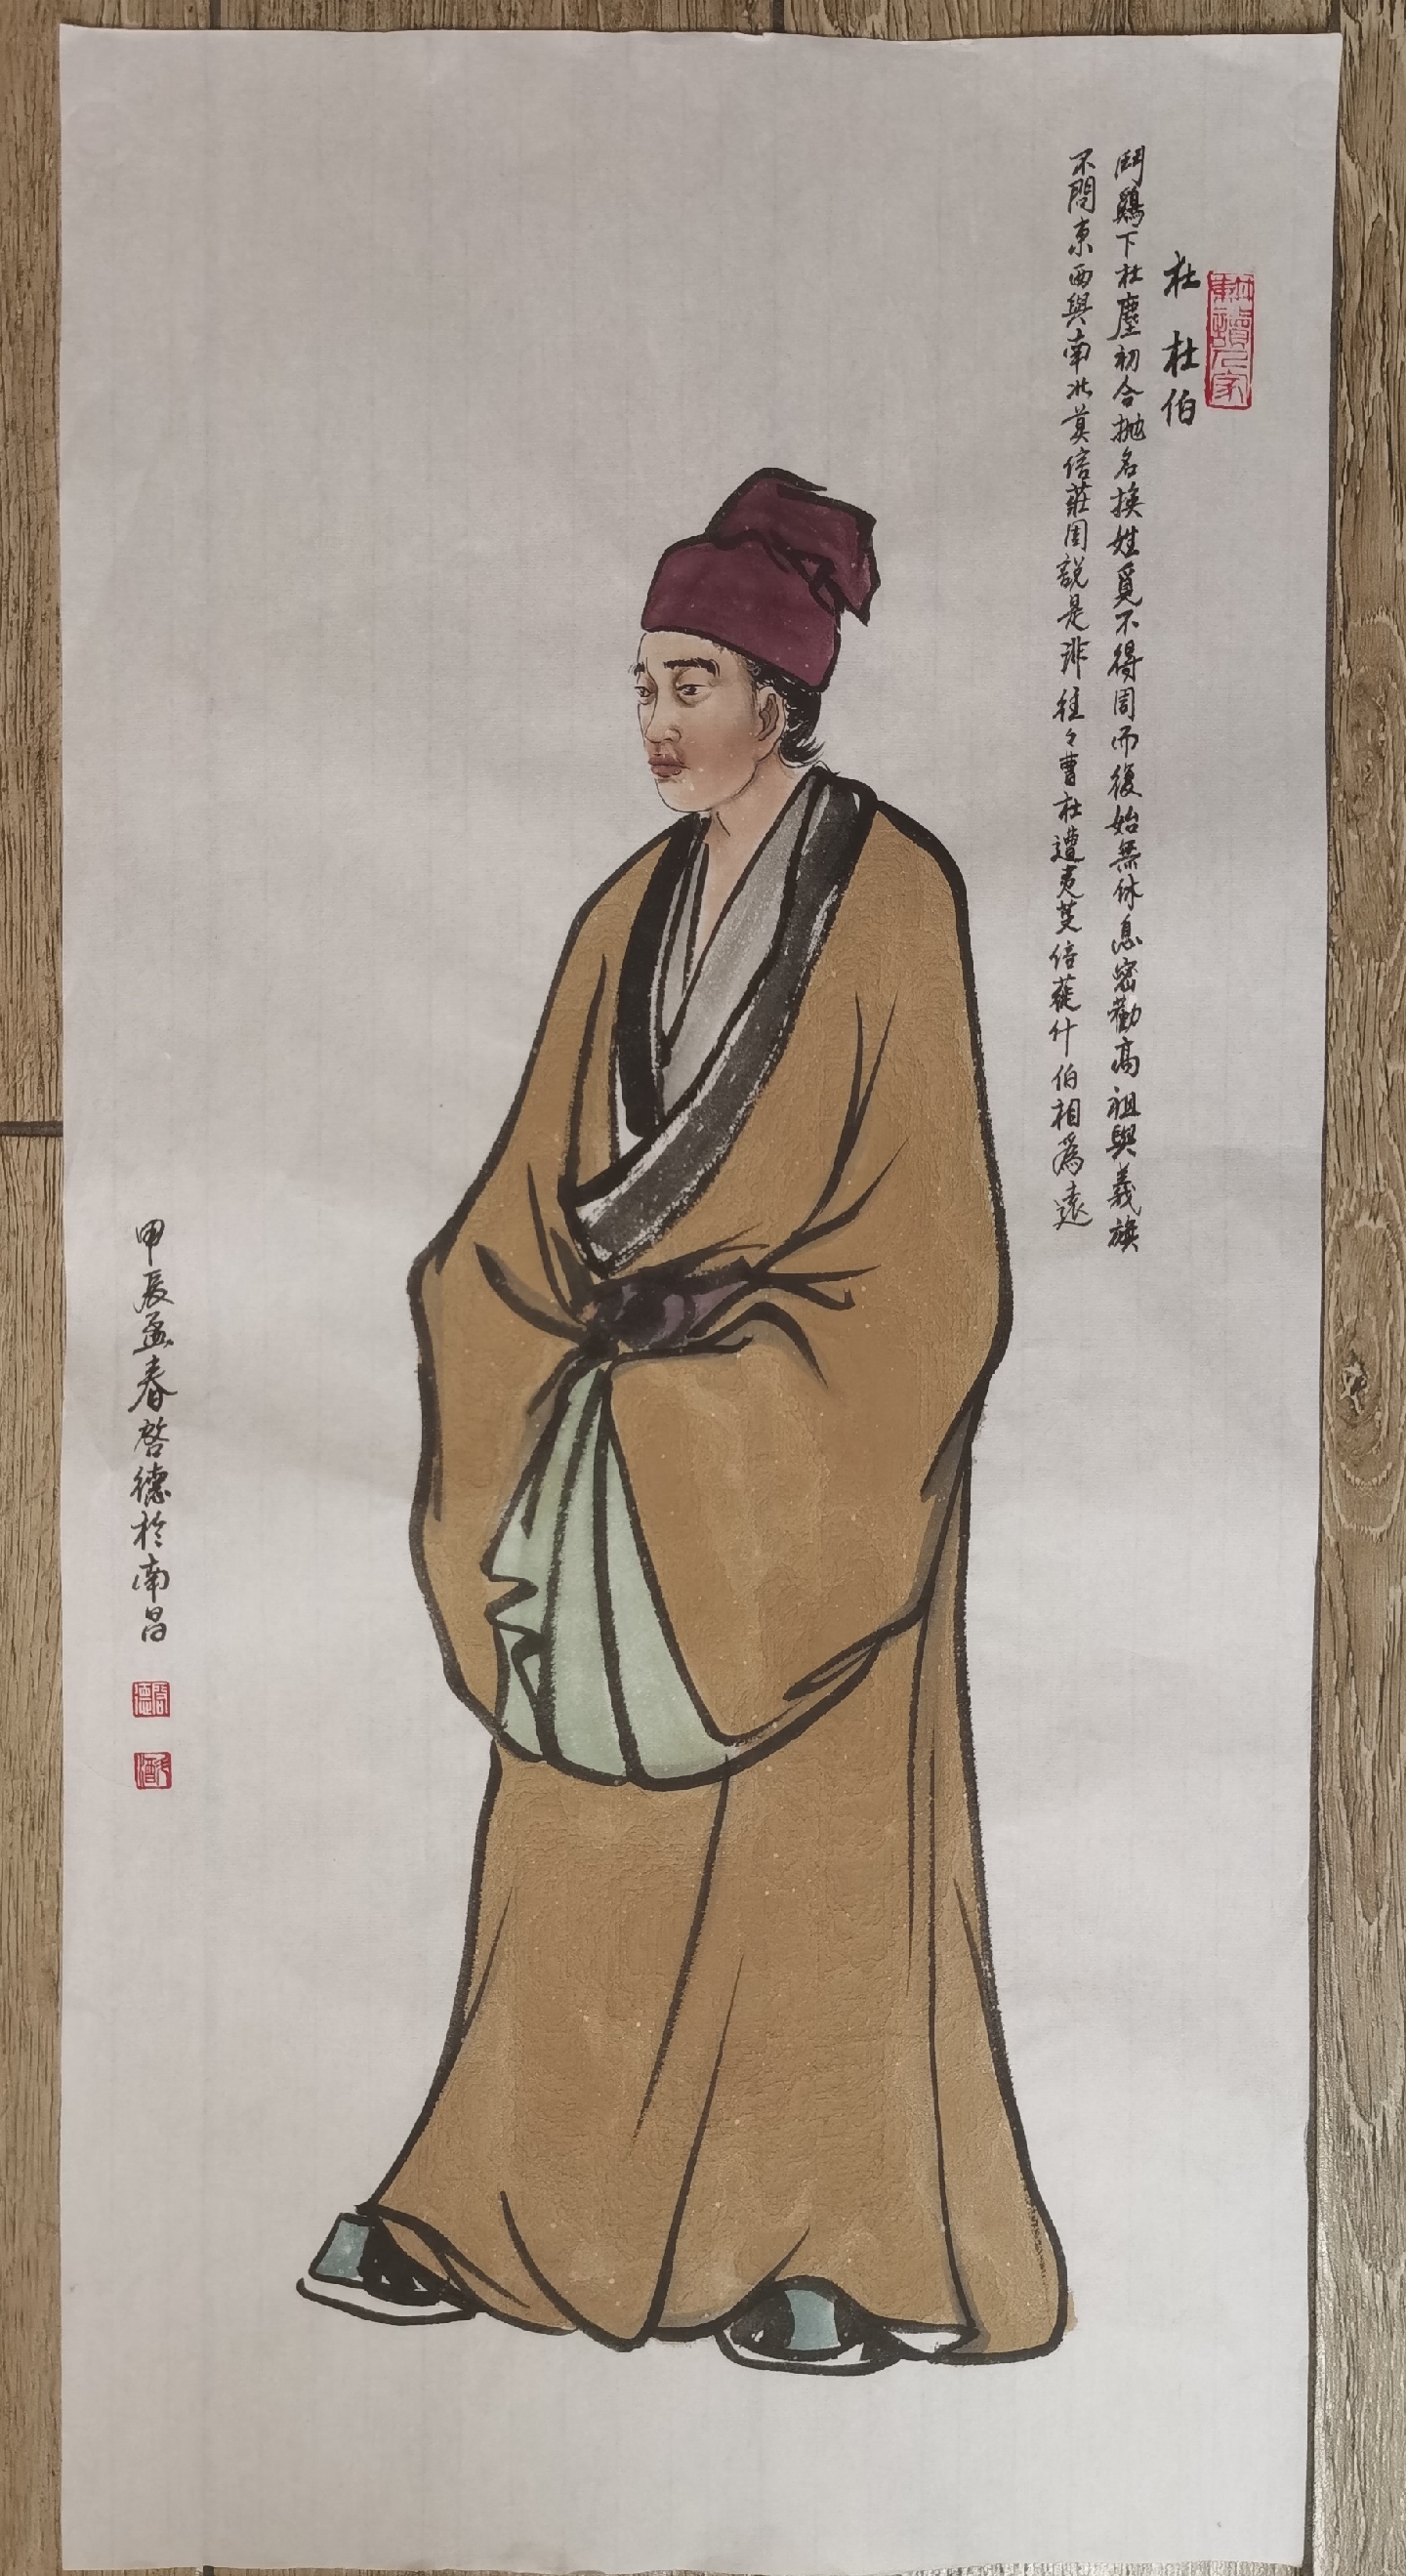 耕讀人家
杜 杜伯
鬥鷄下杜塵初合拋名換姓覓不得周而復始無休息密勸高祖與義旗
不問東西與南北莫信莊周說是非往々曹杜遭夷芟信蓰什伯相為遠
甲辰孟春啓德於南昌
啓德